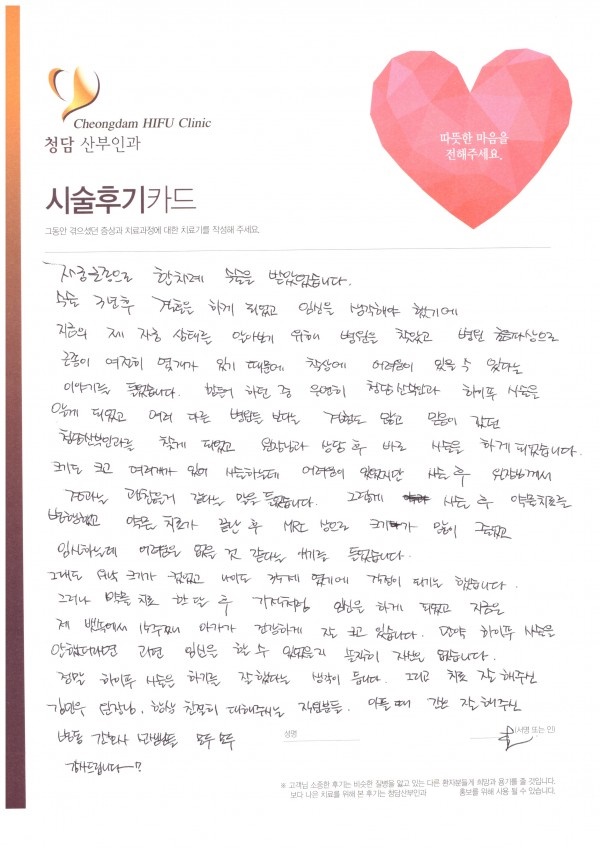 Cheongdam HIFU Clinic
청담 산부인과
따뜻한 마음을
전해주세요.
시술후기카드
그동안 겪으셨던 증상과 치료과정에 대한 치료기를 작성해 주세요.
자궁근종으로 한차례 수술을 받았었습니다.
수술 후 결혼을 하게 되었고 임신을 생각해야 했기에
지금의 제 자궁 상태를 알아보기 위해 병원을 찾았고 병원 상으로
근종이 여전히 몇개가 있기 때문에 착상에 어려움이 있을 수 있다는
이야기를 들었습니다. 하던 중 우연히 청담산부인과 하이푸 시술을
알게 되었고 여러 다른 병원들 보다는 경험도 많고 믿음이 갔던
청담산부인과를 찾게 되었고 원장님과 상담 후 바로 시술을 하게 되었습니다.
크기도 크고 여러개가 있어 시술하는데 어려움이 있었지만 시술 후 원장님께서
결과는 괜찮을거 같다는 말을 들었습니다. 그렇게 시술 후 약물치료를
병행했고 약물 치료가 끝난 후 MRI 상으로 크기가 많이 줄었고
임신하는데 어려움은 없을 것 같다는 얘기를 들었습니다.
그래도 워낙 크기가 컸었고 나이도 있기에 걱정이 되기는 했습니다.
그러나 약물 치료 한 달 후 기적처럼 임신을 하게 되었고 지금은
제 뱃속에서 15주째 아가가 건강하게 잘 크고 있습니다. 만약 하이푸 시술을
안했더라면 과연 임신을 할 수 있었을지 솔직히 자신은 없습니다.
정말 하이푸 시술은 하기를 잘 했다는 생각이 듭니다. 그리고 치료 잘 해주신
김민우 원장님, 항상 친절히 대해주시는 직원분들, 아플 때 간호 잘 해주신
병동 간호사 모두 모두
감사드립니다~?
성명
(서명 또는 인)
※ 고객님 소중한 후기는 비슷한 질병을 앓고 있는 다른 환자분들게 희망과 용기를 줄 것입니다.
보다 나은 치료를 위해 본 후기는 청담산부인과 홍보를 위해 사용 될 수 있습니다.